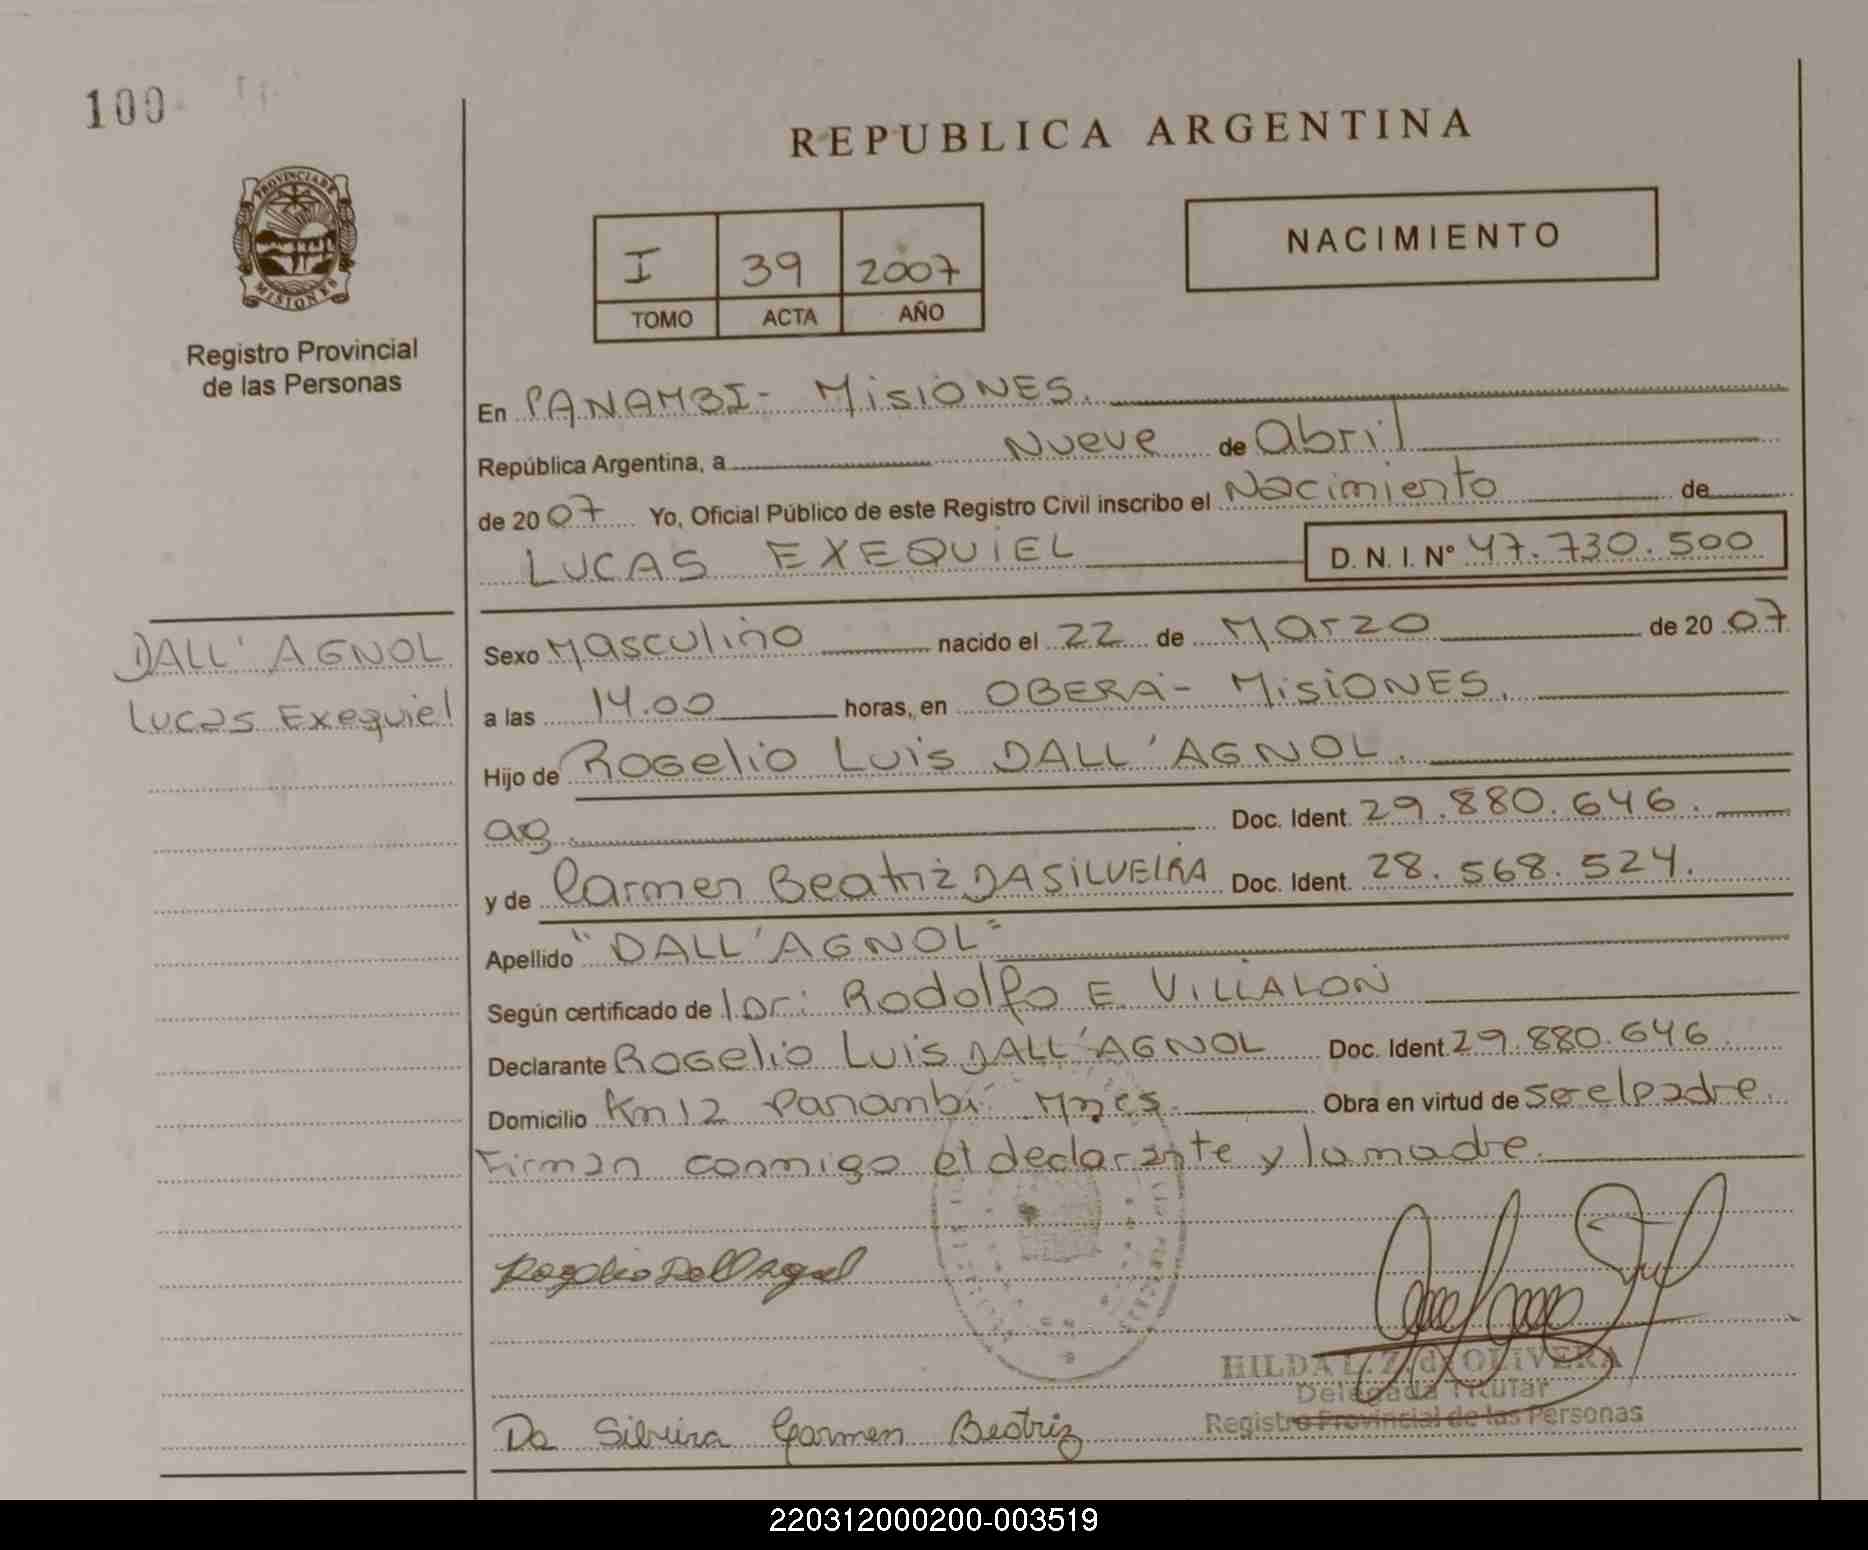 100
REPUBLICA ARGENTINA
PROVINCIA DE
MISIONES
Registro Provincial
de las Personas
I 39 2007
TOMO ACTA AÑO
NACIMIENTO
En PANAMBI- MisiONES.
República Argentina, a Nueve de Abril
de 2007 Yo, Oficial Público de este Registro Civil inscribo el Nacimiento de
LUCAS EXEQUIEL D. N. I. Nº 47.730.500
DALL' AGNOL
Lucas Exequiel
Sexo Masculino nacido el 22 de Marzo de 2007
a las 14.00 horas, en OBERA- MisiONES.
Hijo de Rogelio Luis DALL'AGNOL.
Doc. Ident. 29.880.646.
y de Carmen Beatriz DASILVEIRA Doc. Ident. 28.568.524.
Apellido "DALL'AGNOL"
Según certificado de Dr: Rodolfo E VILLALON
Declarante Rogelio Luis DALL'AGNOL Doc. Ident. 29.880.646
Domicilio Km 12 Panambi Mnes. Obra en virtud de ser el padre.
Firman conmigo el declarante y la madre.
Rogelio Dall Agnol
HILDA L. Z. de OLIVERA
Delegada Titular
Registro Provincial de las Personas
Da Silveira Carmen Beatriz
220312000200-003519